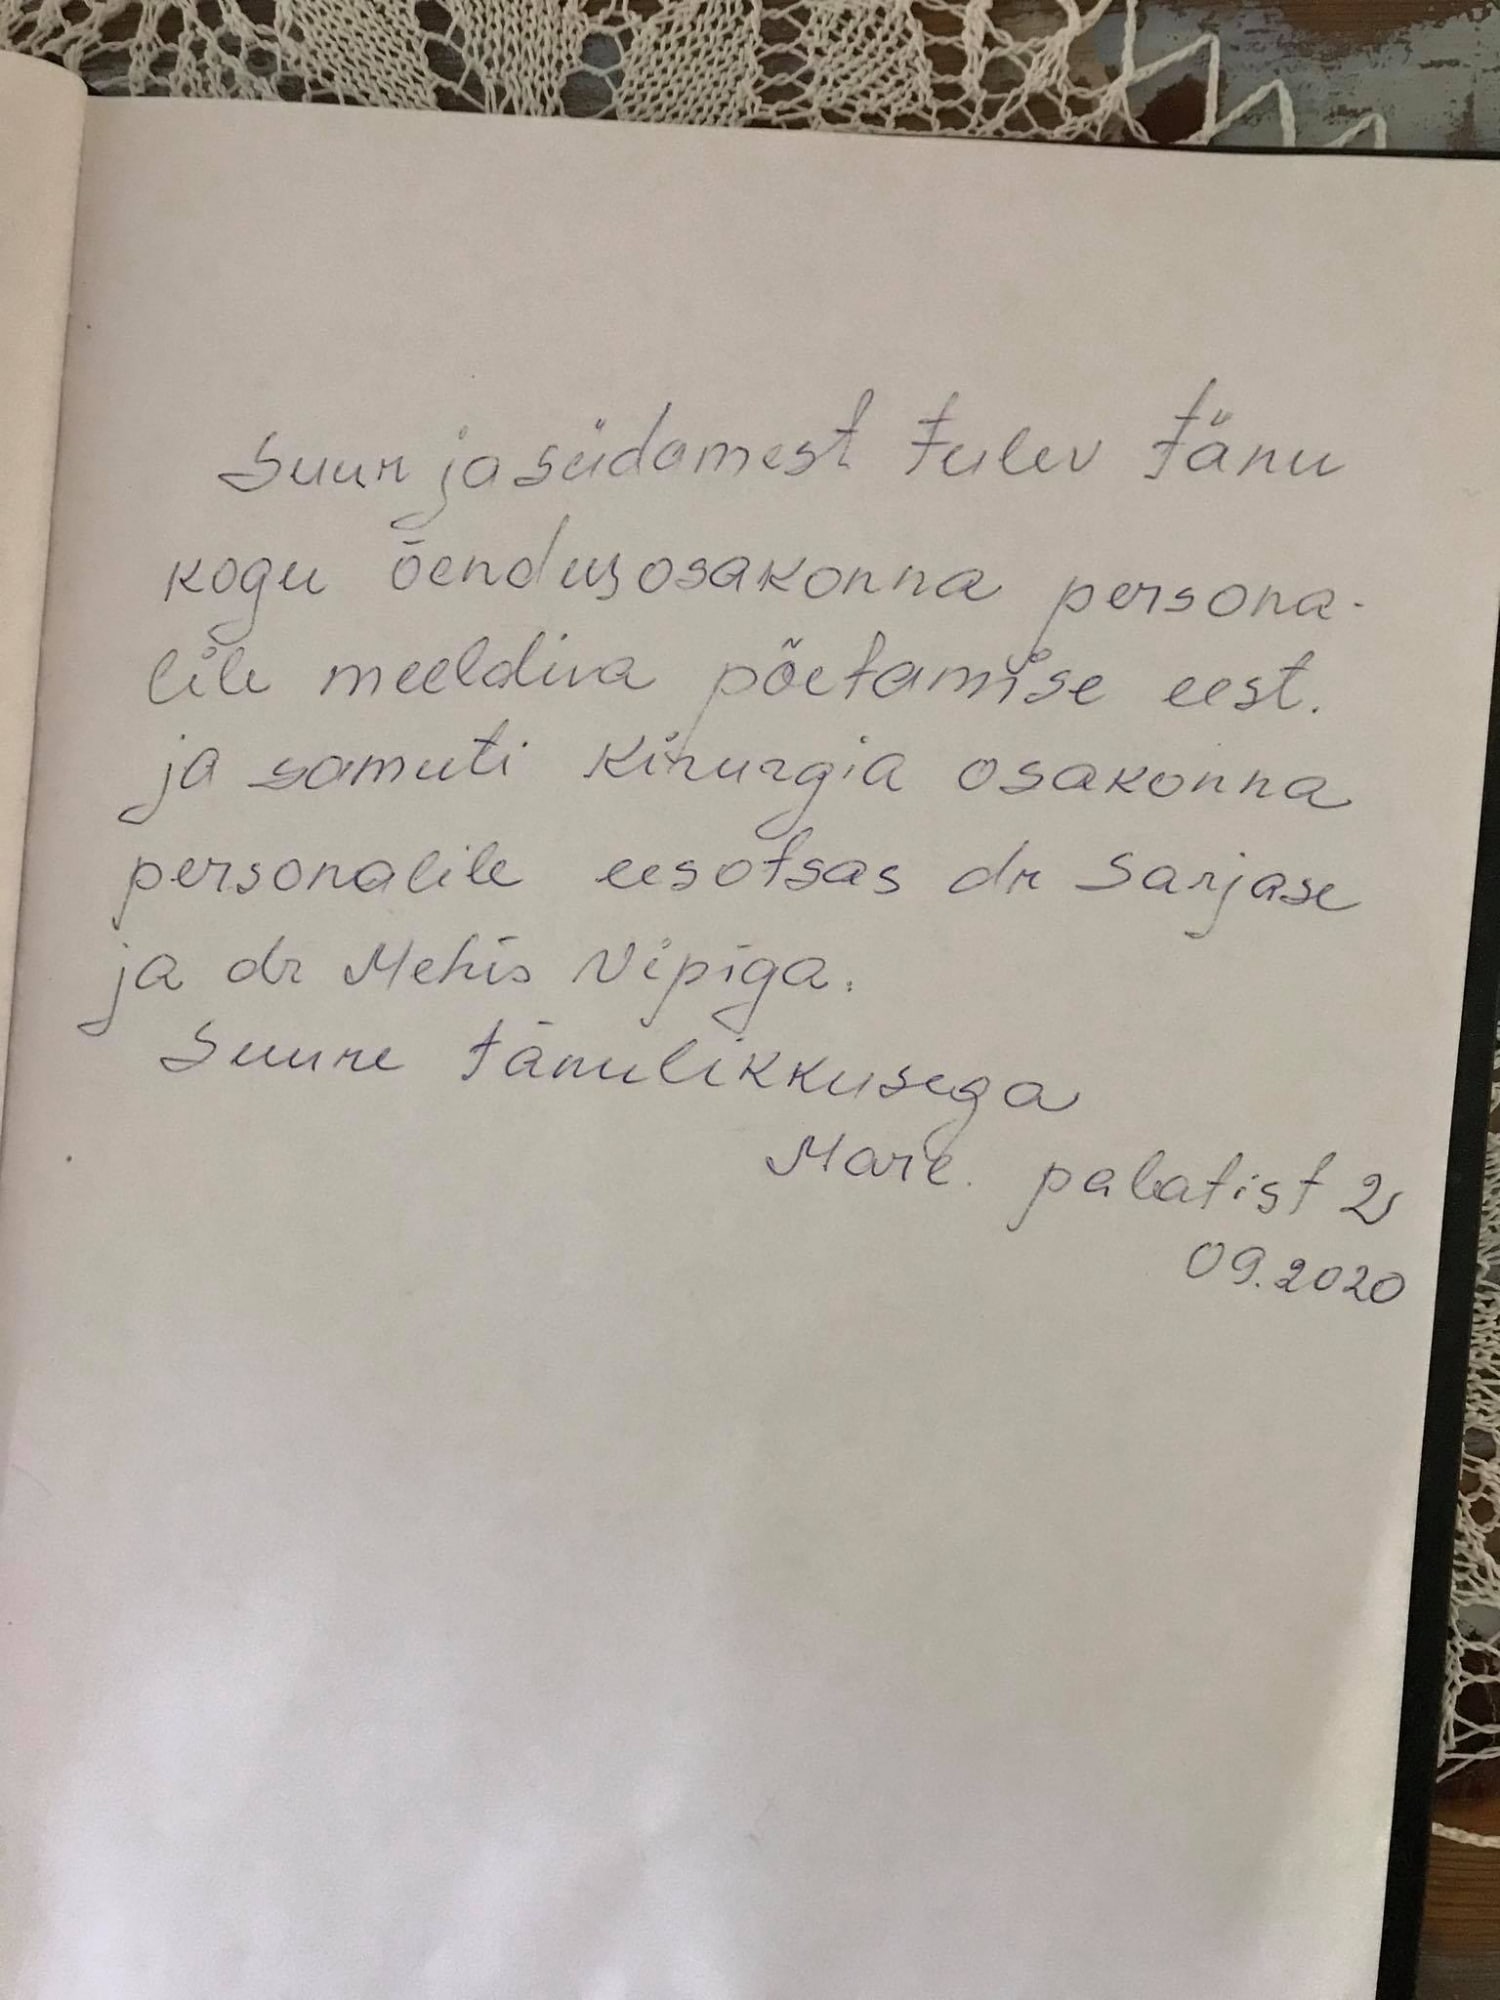 Suur ja südamest tulev tänu
kogu õendusosakonna persona-
lile meeldiva põetamise eest.
ja samuti kirurgia osakonna
personalile eesotsas dr Sarjase
ja dr Mehis Vipiga.
Suure tänulikkusega
Mare. palatist 2
09.2020